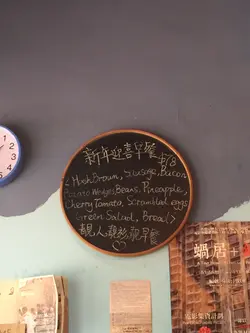 新年迎喜早餐 $78
< HashBrown, Sausage, Bacon
Potato Wedges Beans, Pineapple,
Cherry Tomato, Scrambled eggs
Green Salad, Bread >
靚人靚粧靚早餐
蝸居+